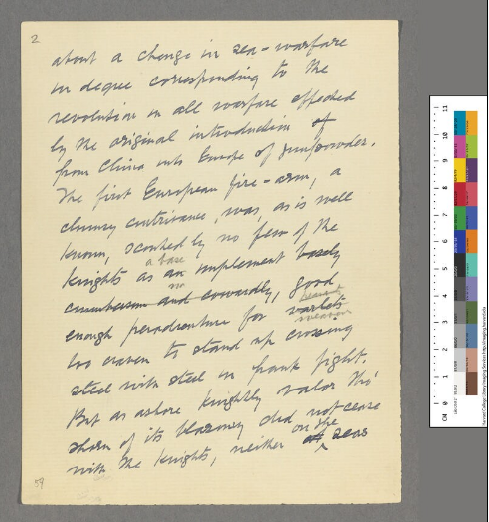 2
about a change in sea-warfare
in degree corresponding to the
revolution in all warfare effected
by the original introduction of
from China into Europe of gunpowder.
The first European fire-arm, a
clumsy contrivance, was, as is well
known, scouted by no few of the
a base
knights as an implement basely
no
and cowardly, good
enough peradventure for varlets
weavers
too craven to stand up crossing
steel with steel in frank fight.
But as ashore knightly valor tho'
shorn of its blazonry did not cease
on the
with the knights, neither at seas
59